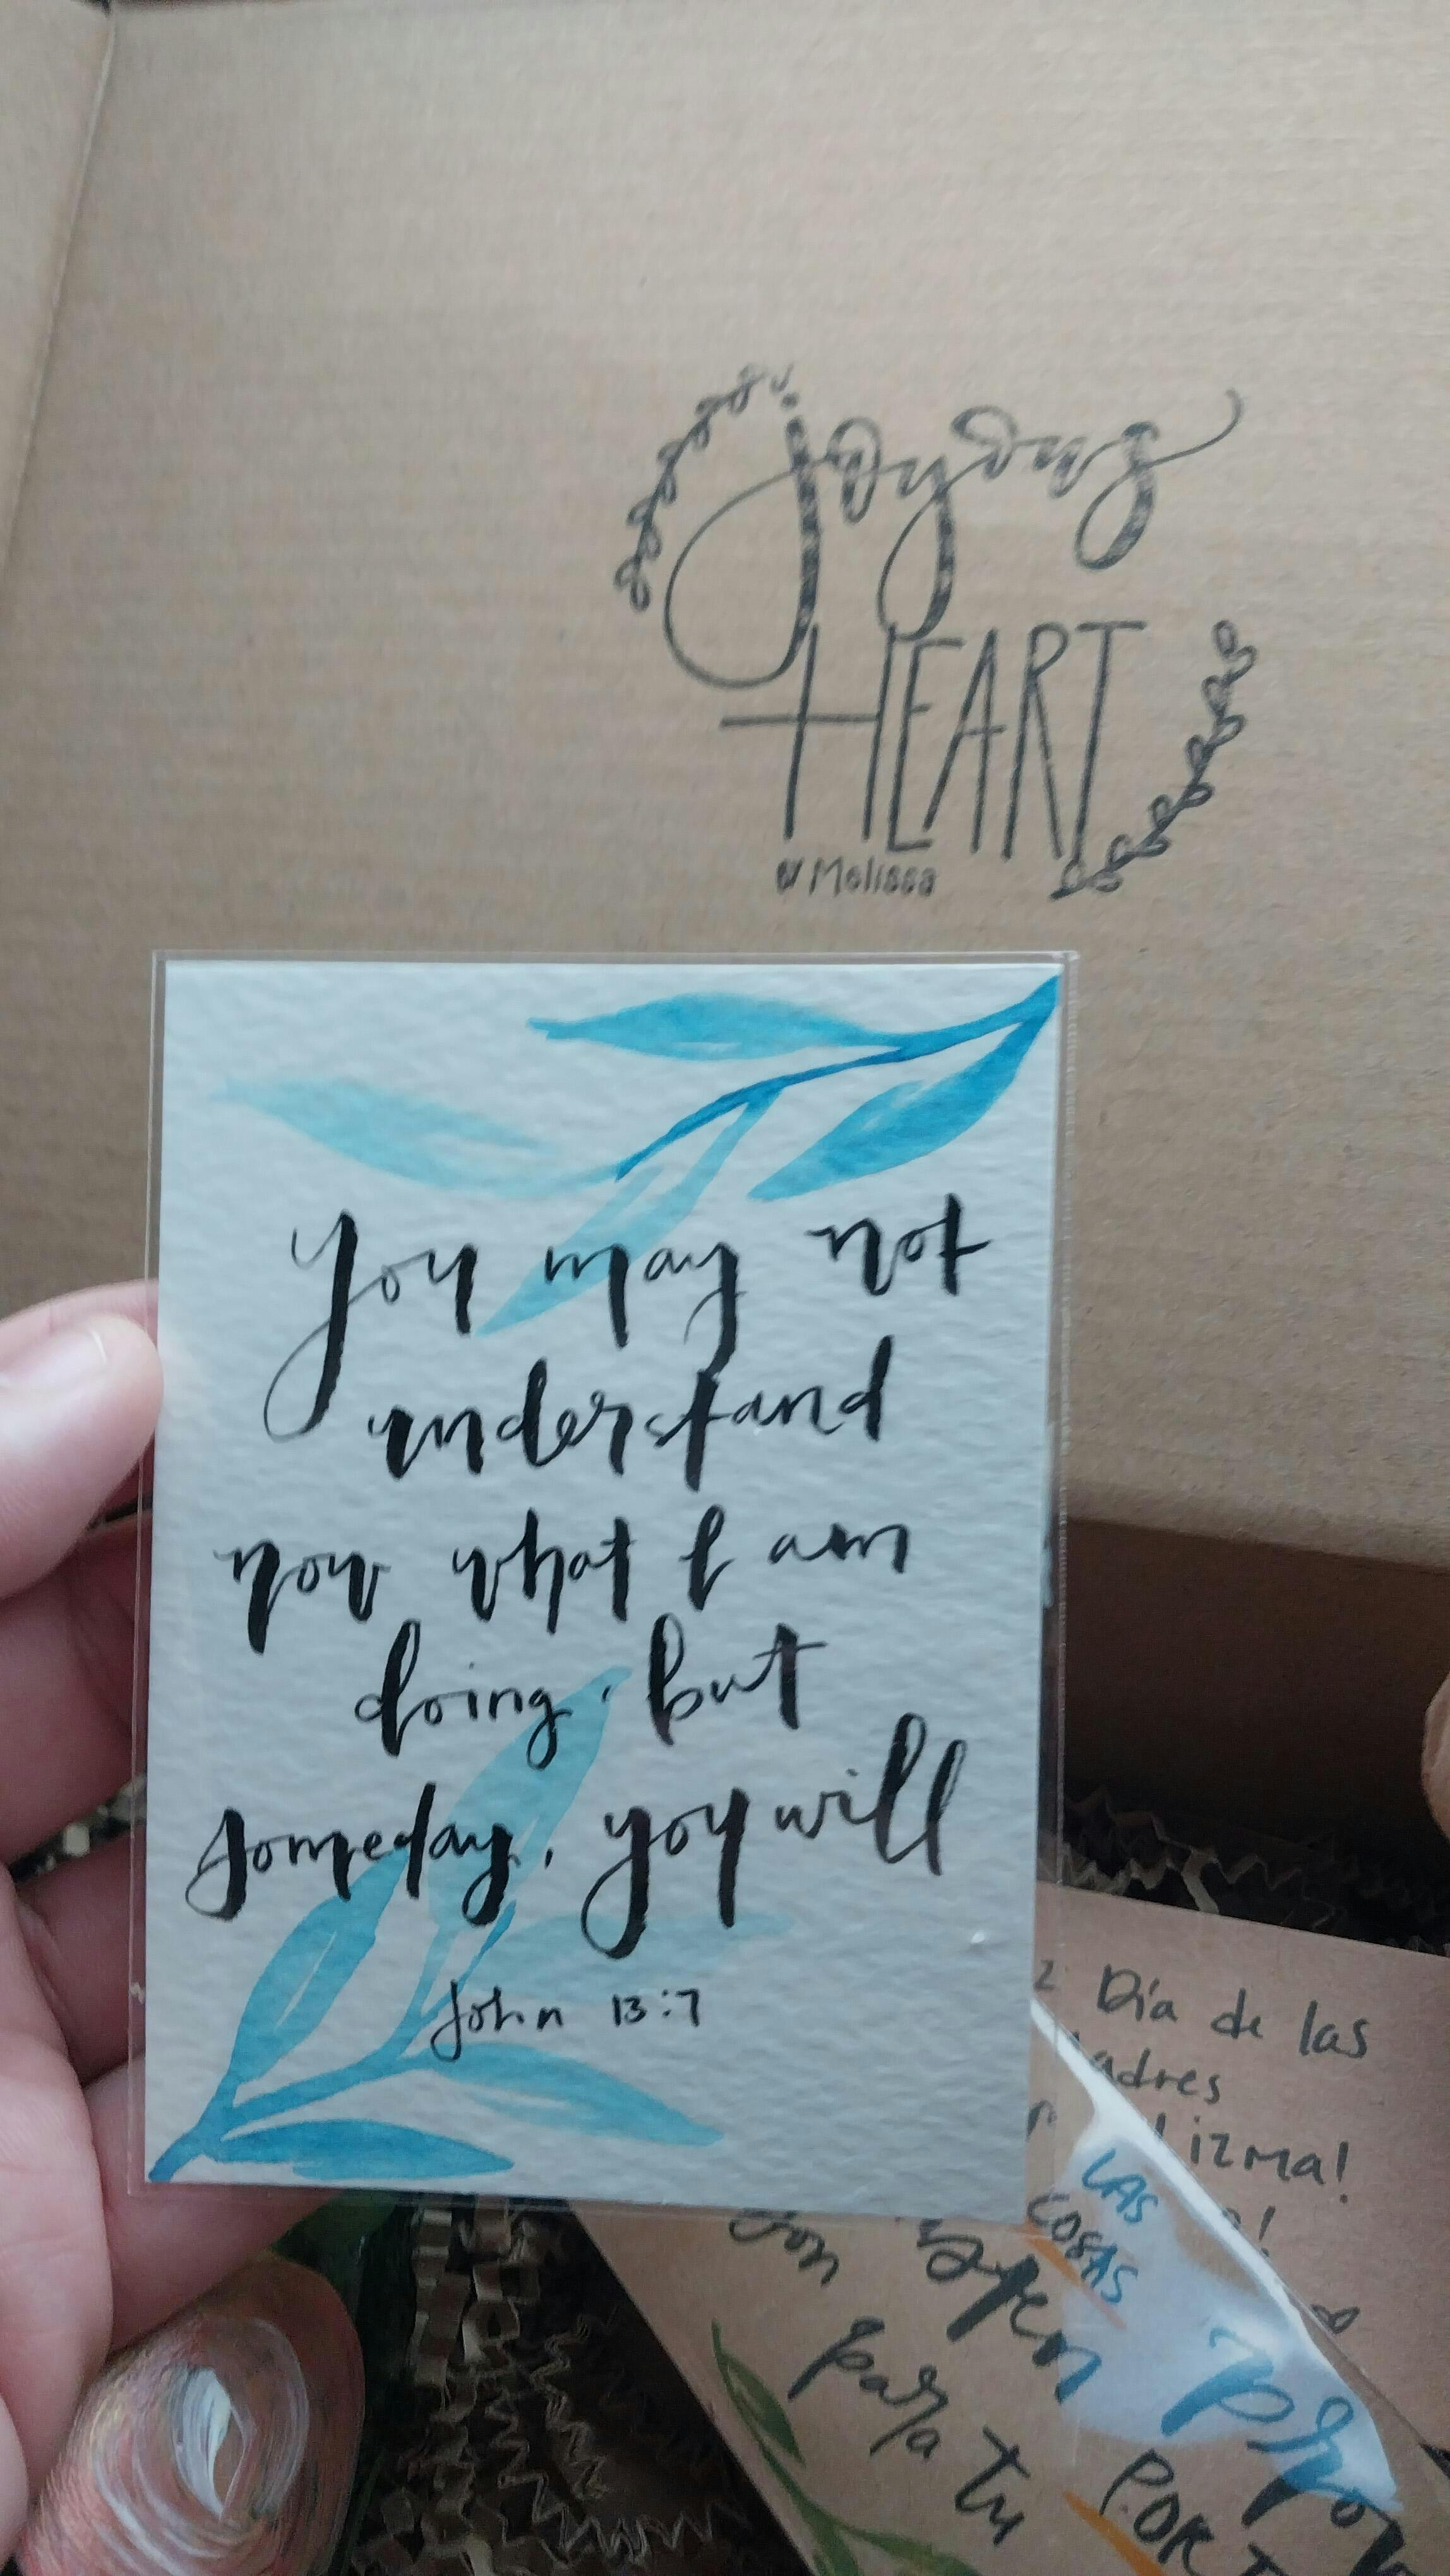 Joyous
HEART
Melissa
you may not
understand
now what I am
doing, but
someday, you will
John 13:7
Día de las
LAS
COSAS
para tu